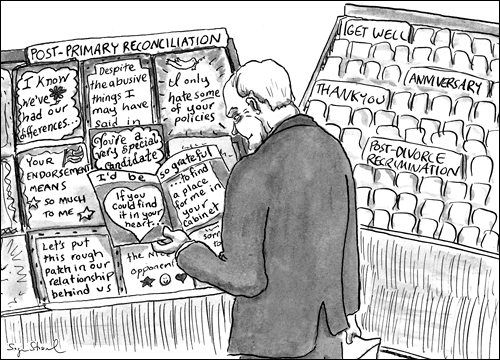 POST-PRIMARY RECONCILIATION
I know
we've
had our
differences...
Despite
the abusive
things I
may have
said in
I only
hate some
of your
policies
You're a
very special
candidate
YOUR
ENDORSEMENT
MEANS
SO MUCH
TO ME
I'd be
If you
could find
it in your
heart...
so grateful
...to find
a place
for me in
your
cabinet
Let's put
this rough
patch in our
relationship
behind us
the
opponent
GET WELL
ANNIVERSARY
THANK YOU
POST-DIVORCE
RECRIMINATION